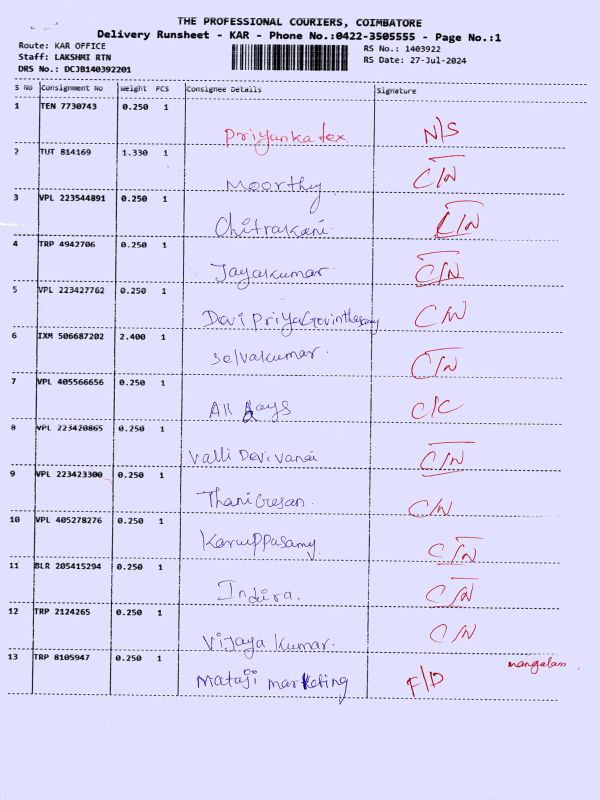 THE PROFESSIONAL COURIERS, COIMBATORE
Delivery Runsheet - KAR - Phone No.:0422-3505555 - Page No.:1
Route: KAR OFFICE RS No.: 1403922
Staff: LAKSHMI RTN RS Date: 27-Jul-2024
DRS No.: DCJB140392201
S No Consignment No Weight PCS Consignee Details Signature
1 TEN 7730743 0.250 1
Priyanka tex. N/S
2 TUT 814169 1.330 1
Moorthy C/N
3 VPL 223544891 0.250 1
Chitrakani. C/N
4 TRP 4942706 0.250 1
Jayakumar. C/N
5 VPL 223427762 0.250 1
Devi Priya Govinthasamy C/N
6 IXM 506687202 2.400 1
Selvakumar. C/N
7 VPL 405566656 0.250 1
All days C/C
8 VPL 223420865 0.250 1
Valli Devi.vanai C/N
9 VPL 223423300 0.250 1
Thanigesan. C/N
10 VPL 405278276 0.250 1
Karuppasamy. C/N
11 BLR 205415294 0.250 1
Indira. C/N
12 TRP 2124265 0.250 1
Vijaya kumar. C/N
13 TRP 8105947 0.250 1 mangalam
Mataji marketing F/D